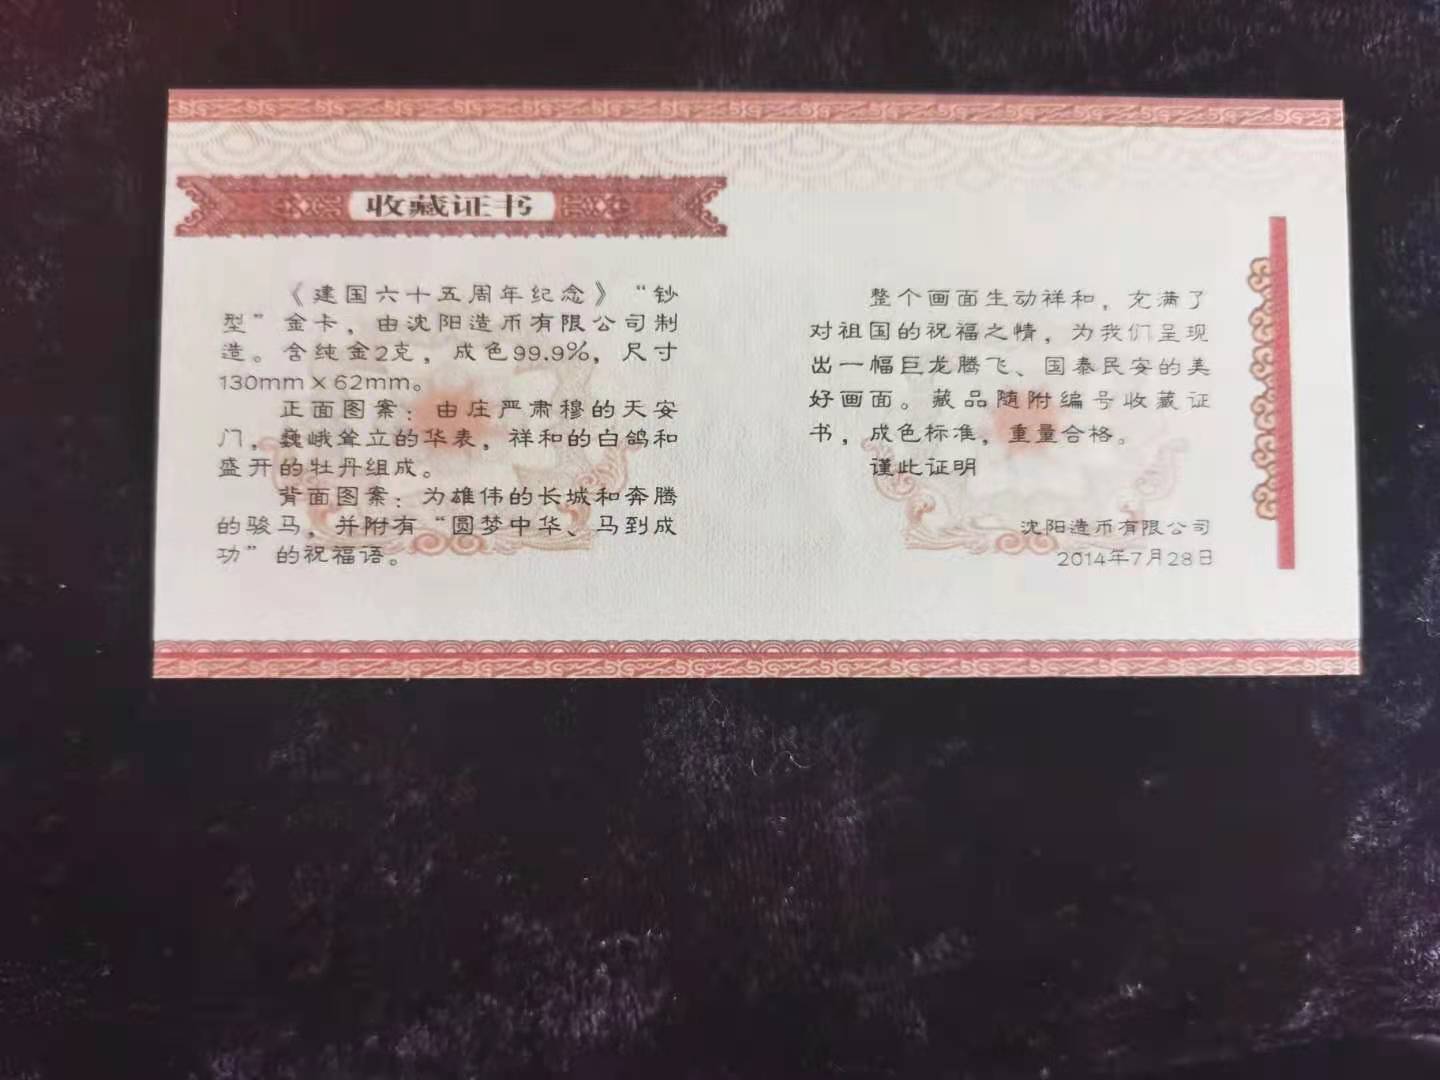 收藏证书
《建国六十五周年纪念》“钞
型”金卡，由沈阳造币有限公司制
造。含纯金2克，成色99.9%，尺寸
130mm×62mm。
正面图案：由庄严肃穆的天安
门，巍峨耸立的华表，祥和的白鸽和
盛开的牡丹组成。
背面图案：为雄伟的长城和奔腾
的骏马，并附有“圆梦中华、马到成
功”的祝福语。
整个画面生动祥和，充满了
对祖国的祝福之情，为我们呈现
出一幅巨龙腾飞、国泰民安的美
好画面。藏品随附编号收藏证
书，成色标准，重量合格。
谨此证明
沈阳造币有限公司
2014年7月28日